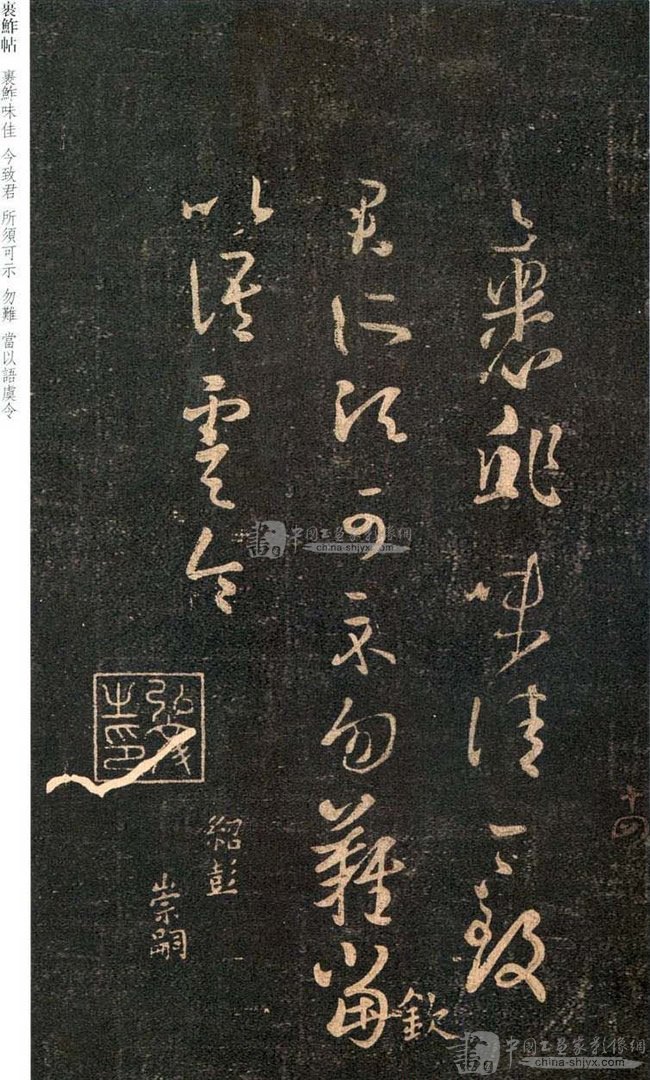 裹鮓帖 裹鮓味佳 今致君 所須可示 勿難 當以語虞令
十四
裹鮓味佳今致
君所須可示勿難當
欽
以語虞令
紹彭
崇嗣
之印
china-shjyx.com
china-shjyx.com